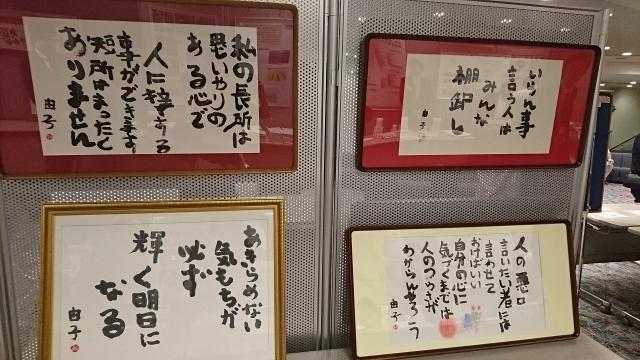 私の長所は
思いやりの
ある心で
人に接する
事ができます。
短所はまったく
ありません
由子
いらん事
言う人は
みんな
棚卸し
由子
あきらめない
気もちが
必ず
輝く明日に
なる
由子
人の悪口
言いたい者には
言わせて
おけばいい
自分の心に
気づくまでは
人のつらさが
わからんやろう
由子